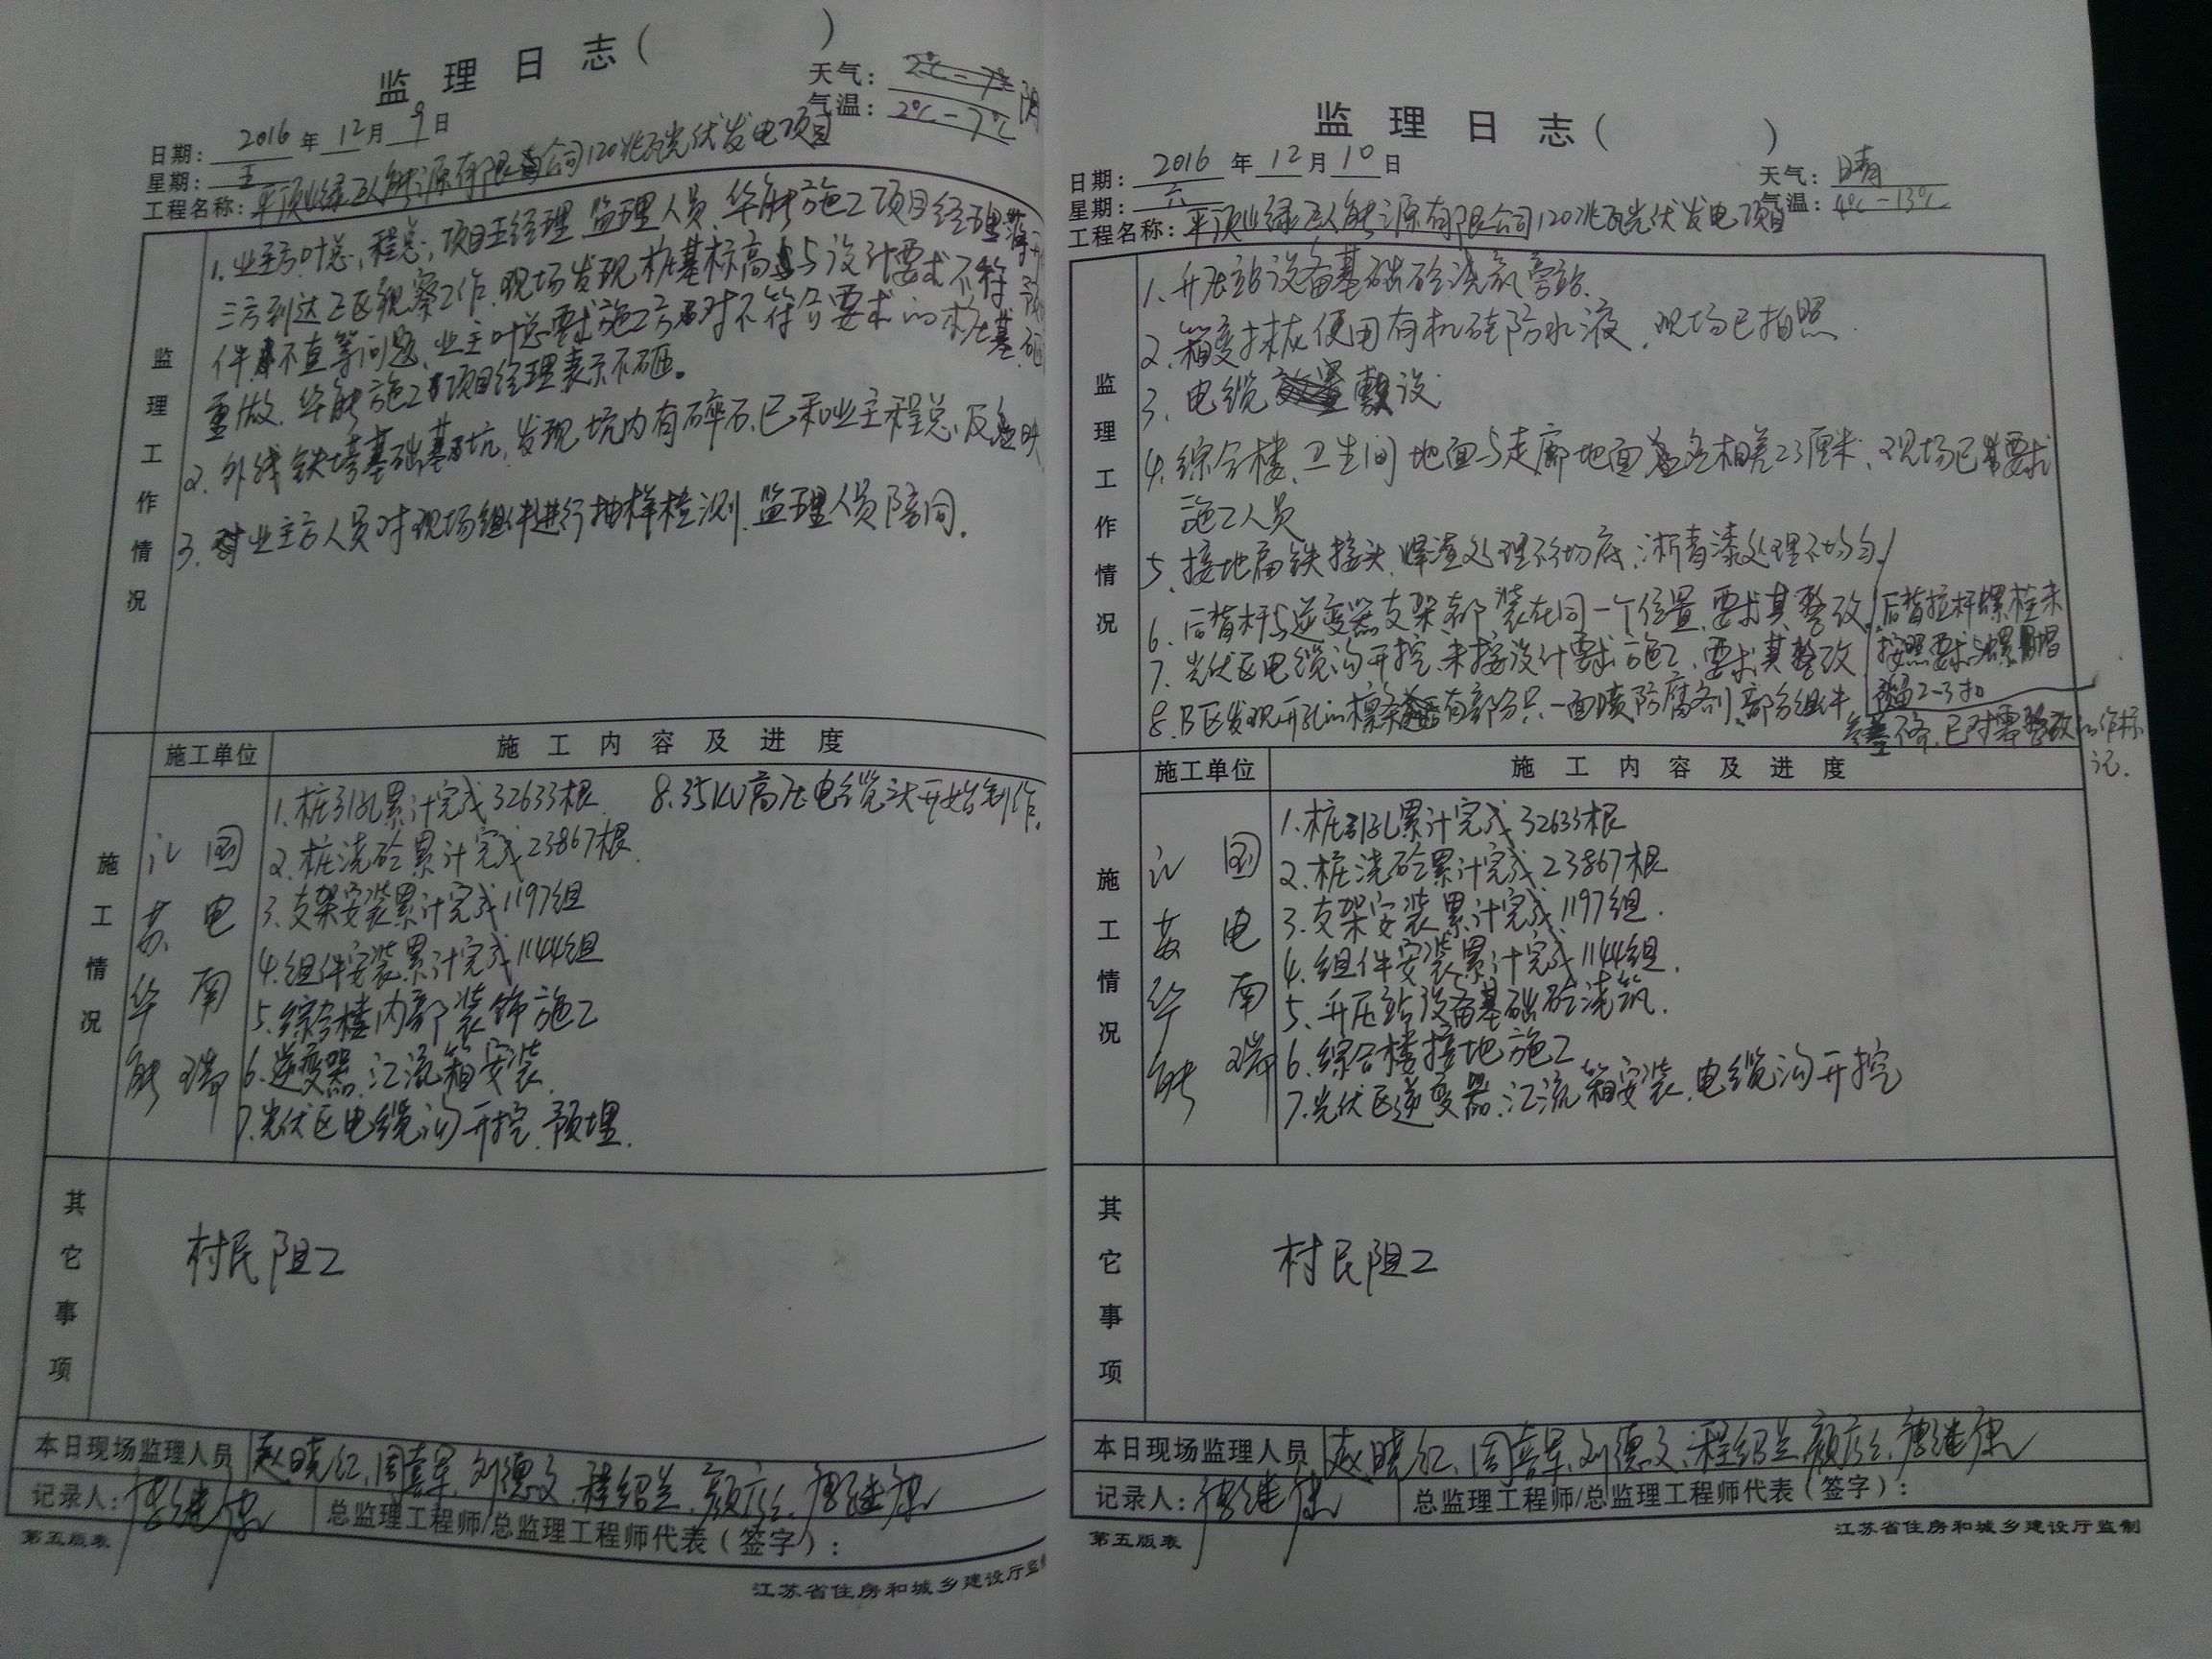 监理日志（ ）
天气：
气温：2℃-7℃ 阴
日期：2016年12月9日
星期：五
工程名称：平顶山绿巨人能源有限公司120兆瓦光伏发电项目
监理工作情况
1. 业主方叶总，程总，项目王经理 监理人员、华能施工项目经理
三方到达E区视察工作，现场发现桩基标高与设计要求不符
件不直等问题，业主叶总要求施工方对不符合要求的桩基
重做. 华能施工项目经理表示不砸。
2. 外线铁塔基础基坑，发现坑内有碎石，已和业主程总反映
3. 业主方人员对现场组件进行抽样检测，监理人员陪同.
施工单位 施工内容及进度
施工情况
江苏华能
国电南瑞
1. 桩引孔累计完成32633根.
2. 桩浇砼累计完成23867根.
3. 支架安装累计完成1197组
4. 组件安装累计完成1144组
5. 综合楼内部装饰施工
6. 逆变器.汇流箱安装.
7. 光伏区电缆沟开挖.预埋.
8. 35KV高压电缆头开始制作.
其它事项
村民阻工
本日现场监理人员 赵晓红、周喜军、刘德文、程绍兰、
记录人： 总监理工程师/总监理工程师代表（签字）：
第五版表
江苏省住房和城乡建设厅监制
监理日志（ ）
日期：2016年12月10日
天气：晴
星期：六
气温：4℃-13℃
工程名称：平顶山绿巨人能源有限公司120兆瓦光伏发电项目
监理工作情况
1. 升压站设备基础砼浇筑旁站.
2. 箱变抹灰使用有机硅防水液，现场已拍照.
3. 电缆敷设
4. 综合楼、卫生间地面与走廊地面相差23厘米，现场已要求
施工人员
5. 接地扁铁接头，焊渣处理不彻底，沥青漆处理不均匀.
6. 后背杆与逆变器支架都装在同一个位置，要求其整改.
7. 光伏区电缆沟开挖，未按设计要求施工，要求其整改
后背拉杆螺栓未
按照要求
2-3扣
8. B区发现开孔的檩条有部分只一面喷防腐剂，部分组件
不齐，已对需整改的作标
记.
施工单位 施工内容及进度
施工情况
江苏华能
国电南瑞
1. 桩引孔累计完成32633根
2. 桩浇砼累计完成23867根
3. 支架安装累计完成1197组.
4. 组件安装累计完成1144组.
5. 升压站设备基础砼浇筑.
6. 综合楼接地施工
7. 光伏区逆变器.汇流箱安装.电缆沟开挖
其它事项
村民阻工
本日现场监理人员 赵晓红、周喜军、刘德文、程绍兰、
记录人： 总监理工程师/总监理工程师代表（签字）：
第五版表
江苏省住房和城乡建设厅监制